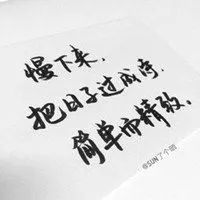 慢下来，
把日子过成诗，
简单而精致。
@SUN了个喵